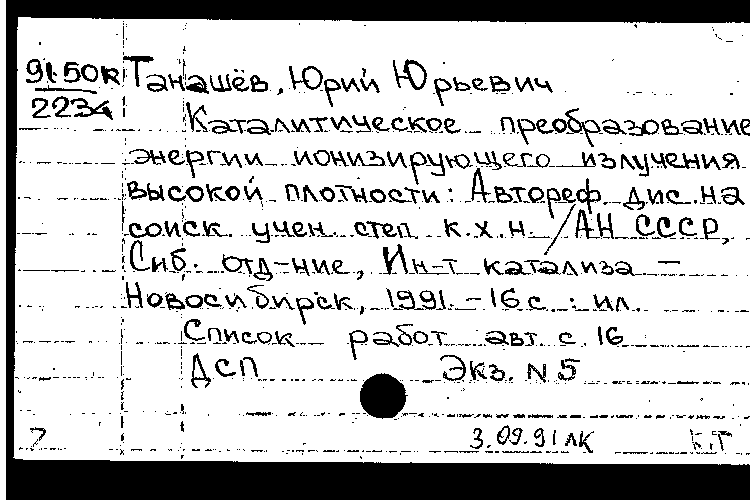 91.50к Танашёв, Юрий Юрьевич
2234
Каталитическое преобразование
энергии ионизирующего излучения
высокой плотности: Автореф. дис. на
соиск. учен. степ. к.х.н. / АН СССР,
Сиб. отд-ние, Ин-т катализа –
Новосибирск, 1991. – 16 с. : ил.
Список работ авт. с. 16
ДСП Экз. N 5
3.09.91 ЛК К.Т